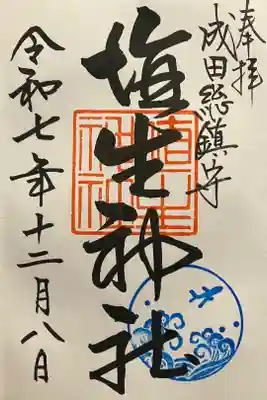 奉拝
成田総鎮守
埴生神社
埴生
神社
令和七年十二月八日